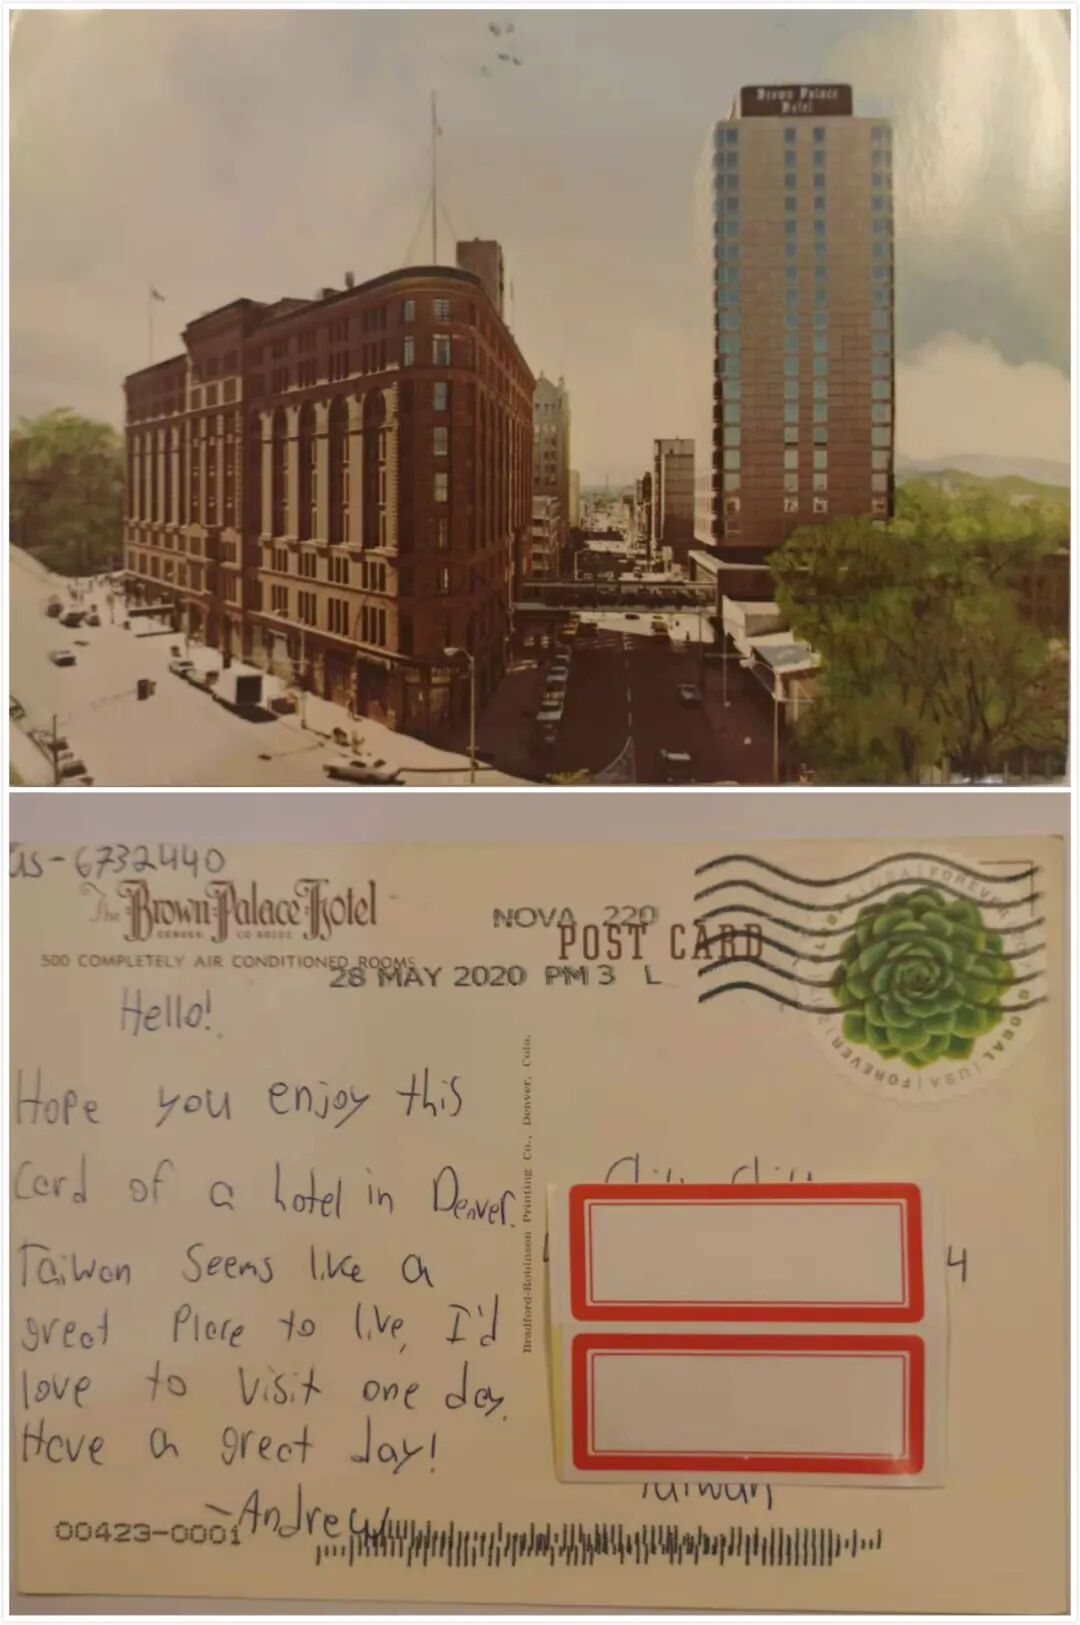 Brown Palace
Hotel
US-6732440
The Brown Palace Hotel
DENVER, CO 80202
500 COMPLETELY AIR CONDITIONED ROOMS
NOVA 220
POST CARD
28 MAY 2020 PM 3 L
USA | FOREVER
GLOBAL | USA | FOREVER
Hello!
Hope you enjoy this
card of a hotel in Denver.
Taiwan seems like a
great place to live, I'd
love to visit one day.
Have a great day!
-Andrew
Bradford-Robinson Printing Co., Denver, Colo.
4
Taiwan
00423-0001